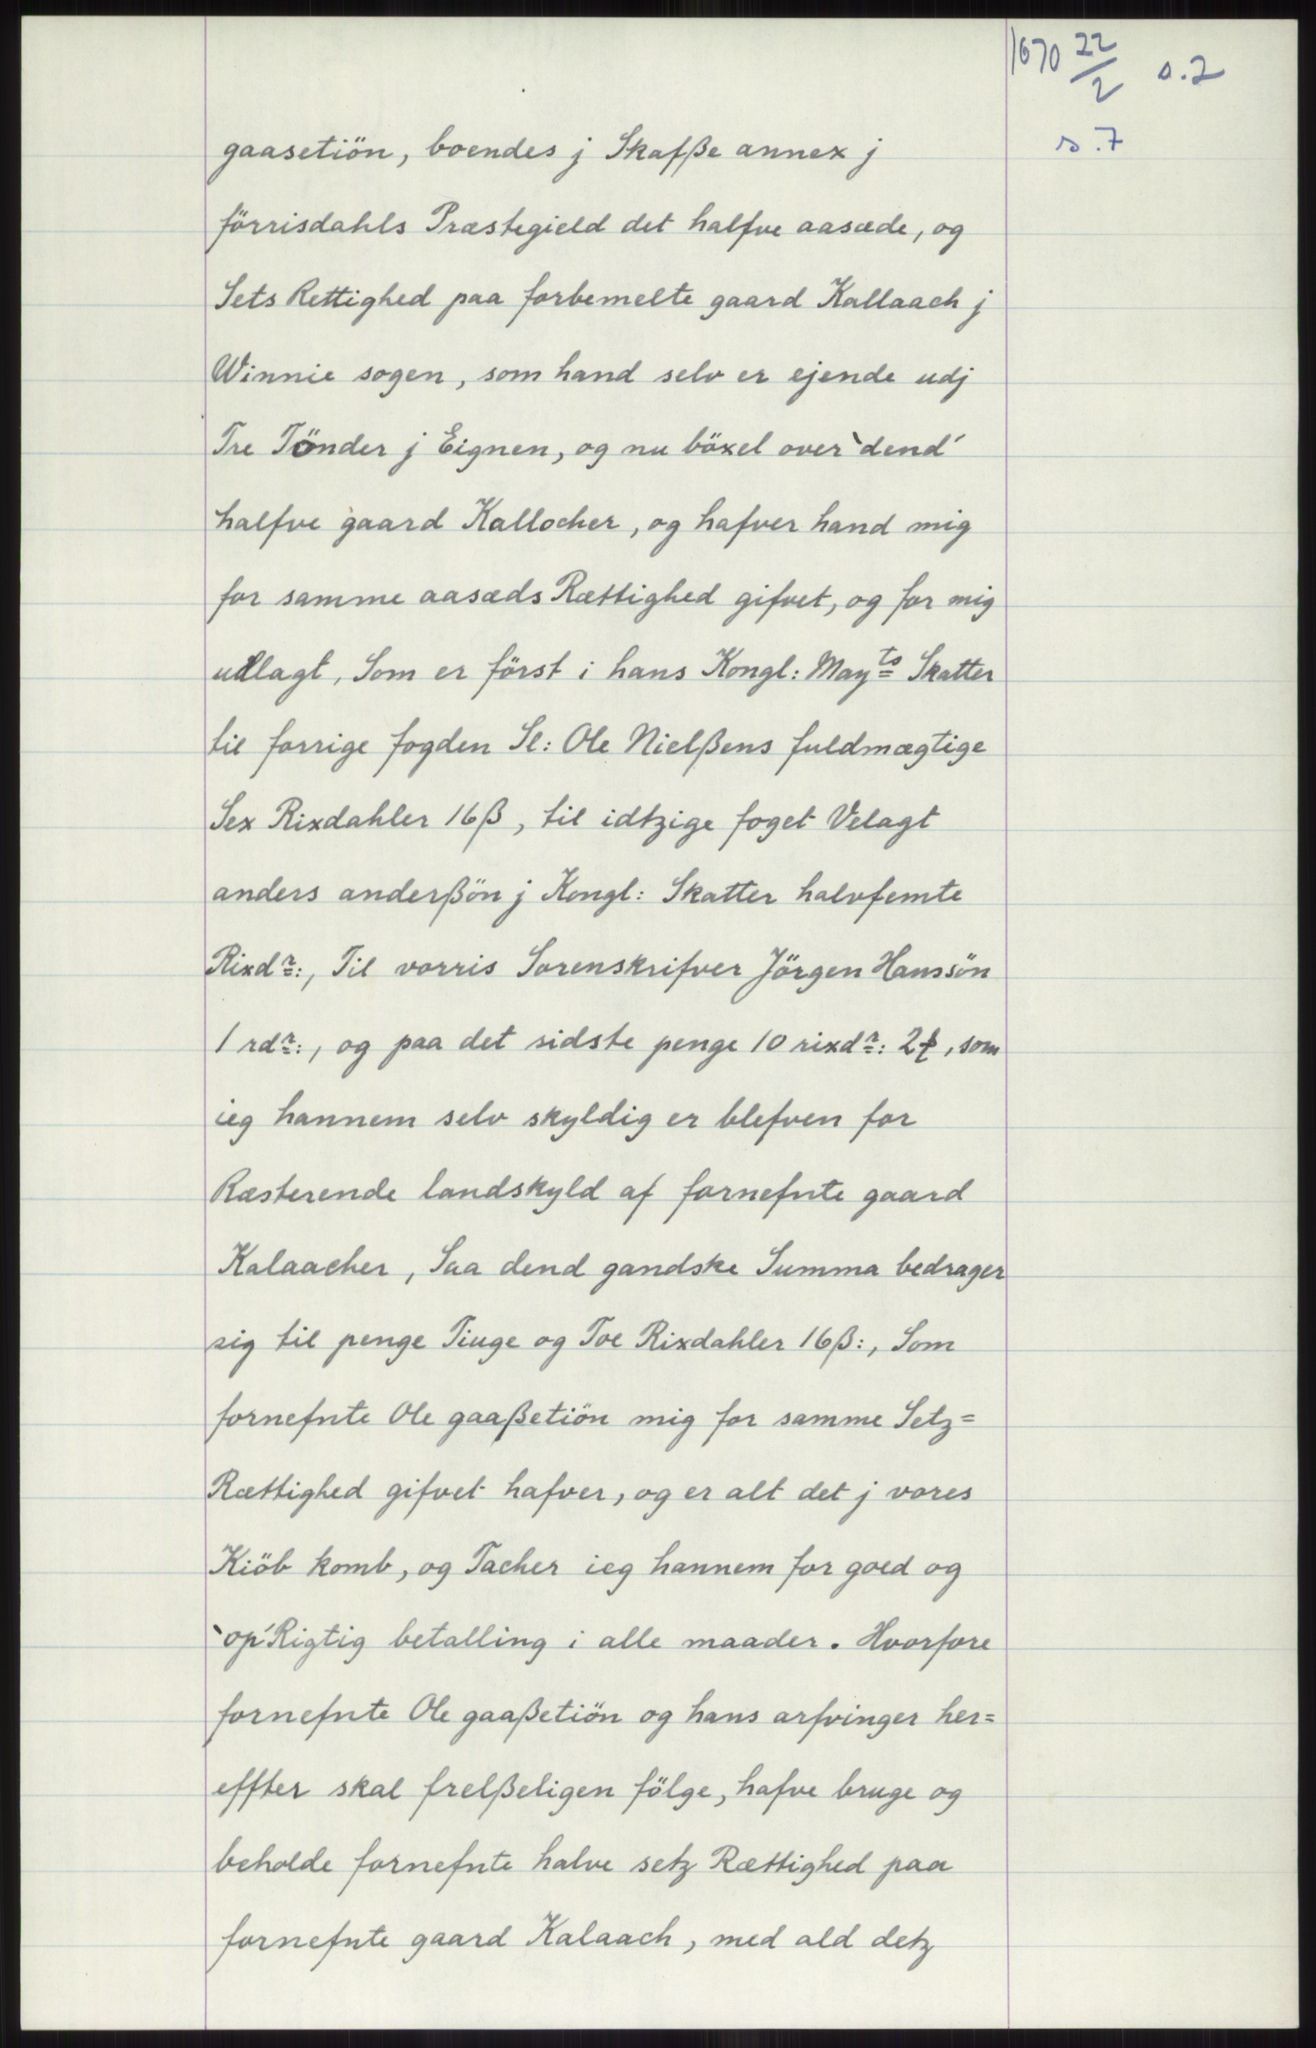 1670 22/2 s.2
s.7
gaasetiön, boendes j Skafße annex j
förrisdahls Præstegield det halfve aasæde, og
Sets Rettighed paa forbemelte gaard Kallaach j
Winnie sogen, som hand selv er ejende udj
Tre Tönder j Eignen, og nu böxel over `dend´
halfve gaard Kallocher, og hafver hand mig
for samme aasæds Rættighed gifvet, og for mig
udlagt, Som er först i hans Kongl: Mayts Skatter
til forrige fogden Sl: Ole Nielßens fuldmægtige
Sex Rixdahler 16ß, til idtzige foget Velagt
anders anderßön j Kongl: Skatter halvfemte
Rixdr:, Til vorris Sorenskrifver Jörgen Hanssön
1 rdr:, og paa det sidste penge 10 rixdr: 2ƒ, som
ieg hannem selv skyldig er blefven for
Ræsterende landskyld af fornefnte gaard
Kalaacher, Saa dend gandske Summa bedrager
sig til penge Tiuge og Toe Rixdahler 16ß:, Som
fornefnte Ole gaaßetiön mig for samme Setz=
Rættighed gifvet hafver, og er alt det j vores
Kiöb komb, og Tacher ieg hannem for goed og
`op´Rigtig betalling i alle maader. Hvorfore
fornefnte Ole gaaßetiön og hans arfvinger her=
effter skal frelßeligen fölge, hafve bruge og
beholde fornefnte halve setz Rættighed paa
fornefnte gaard Kalaach, med ald detz